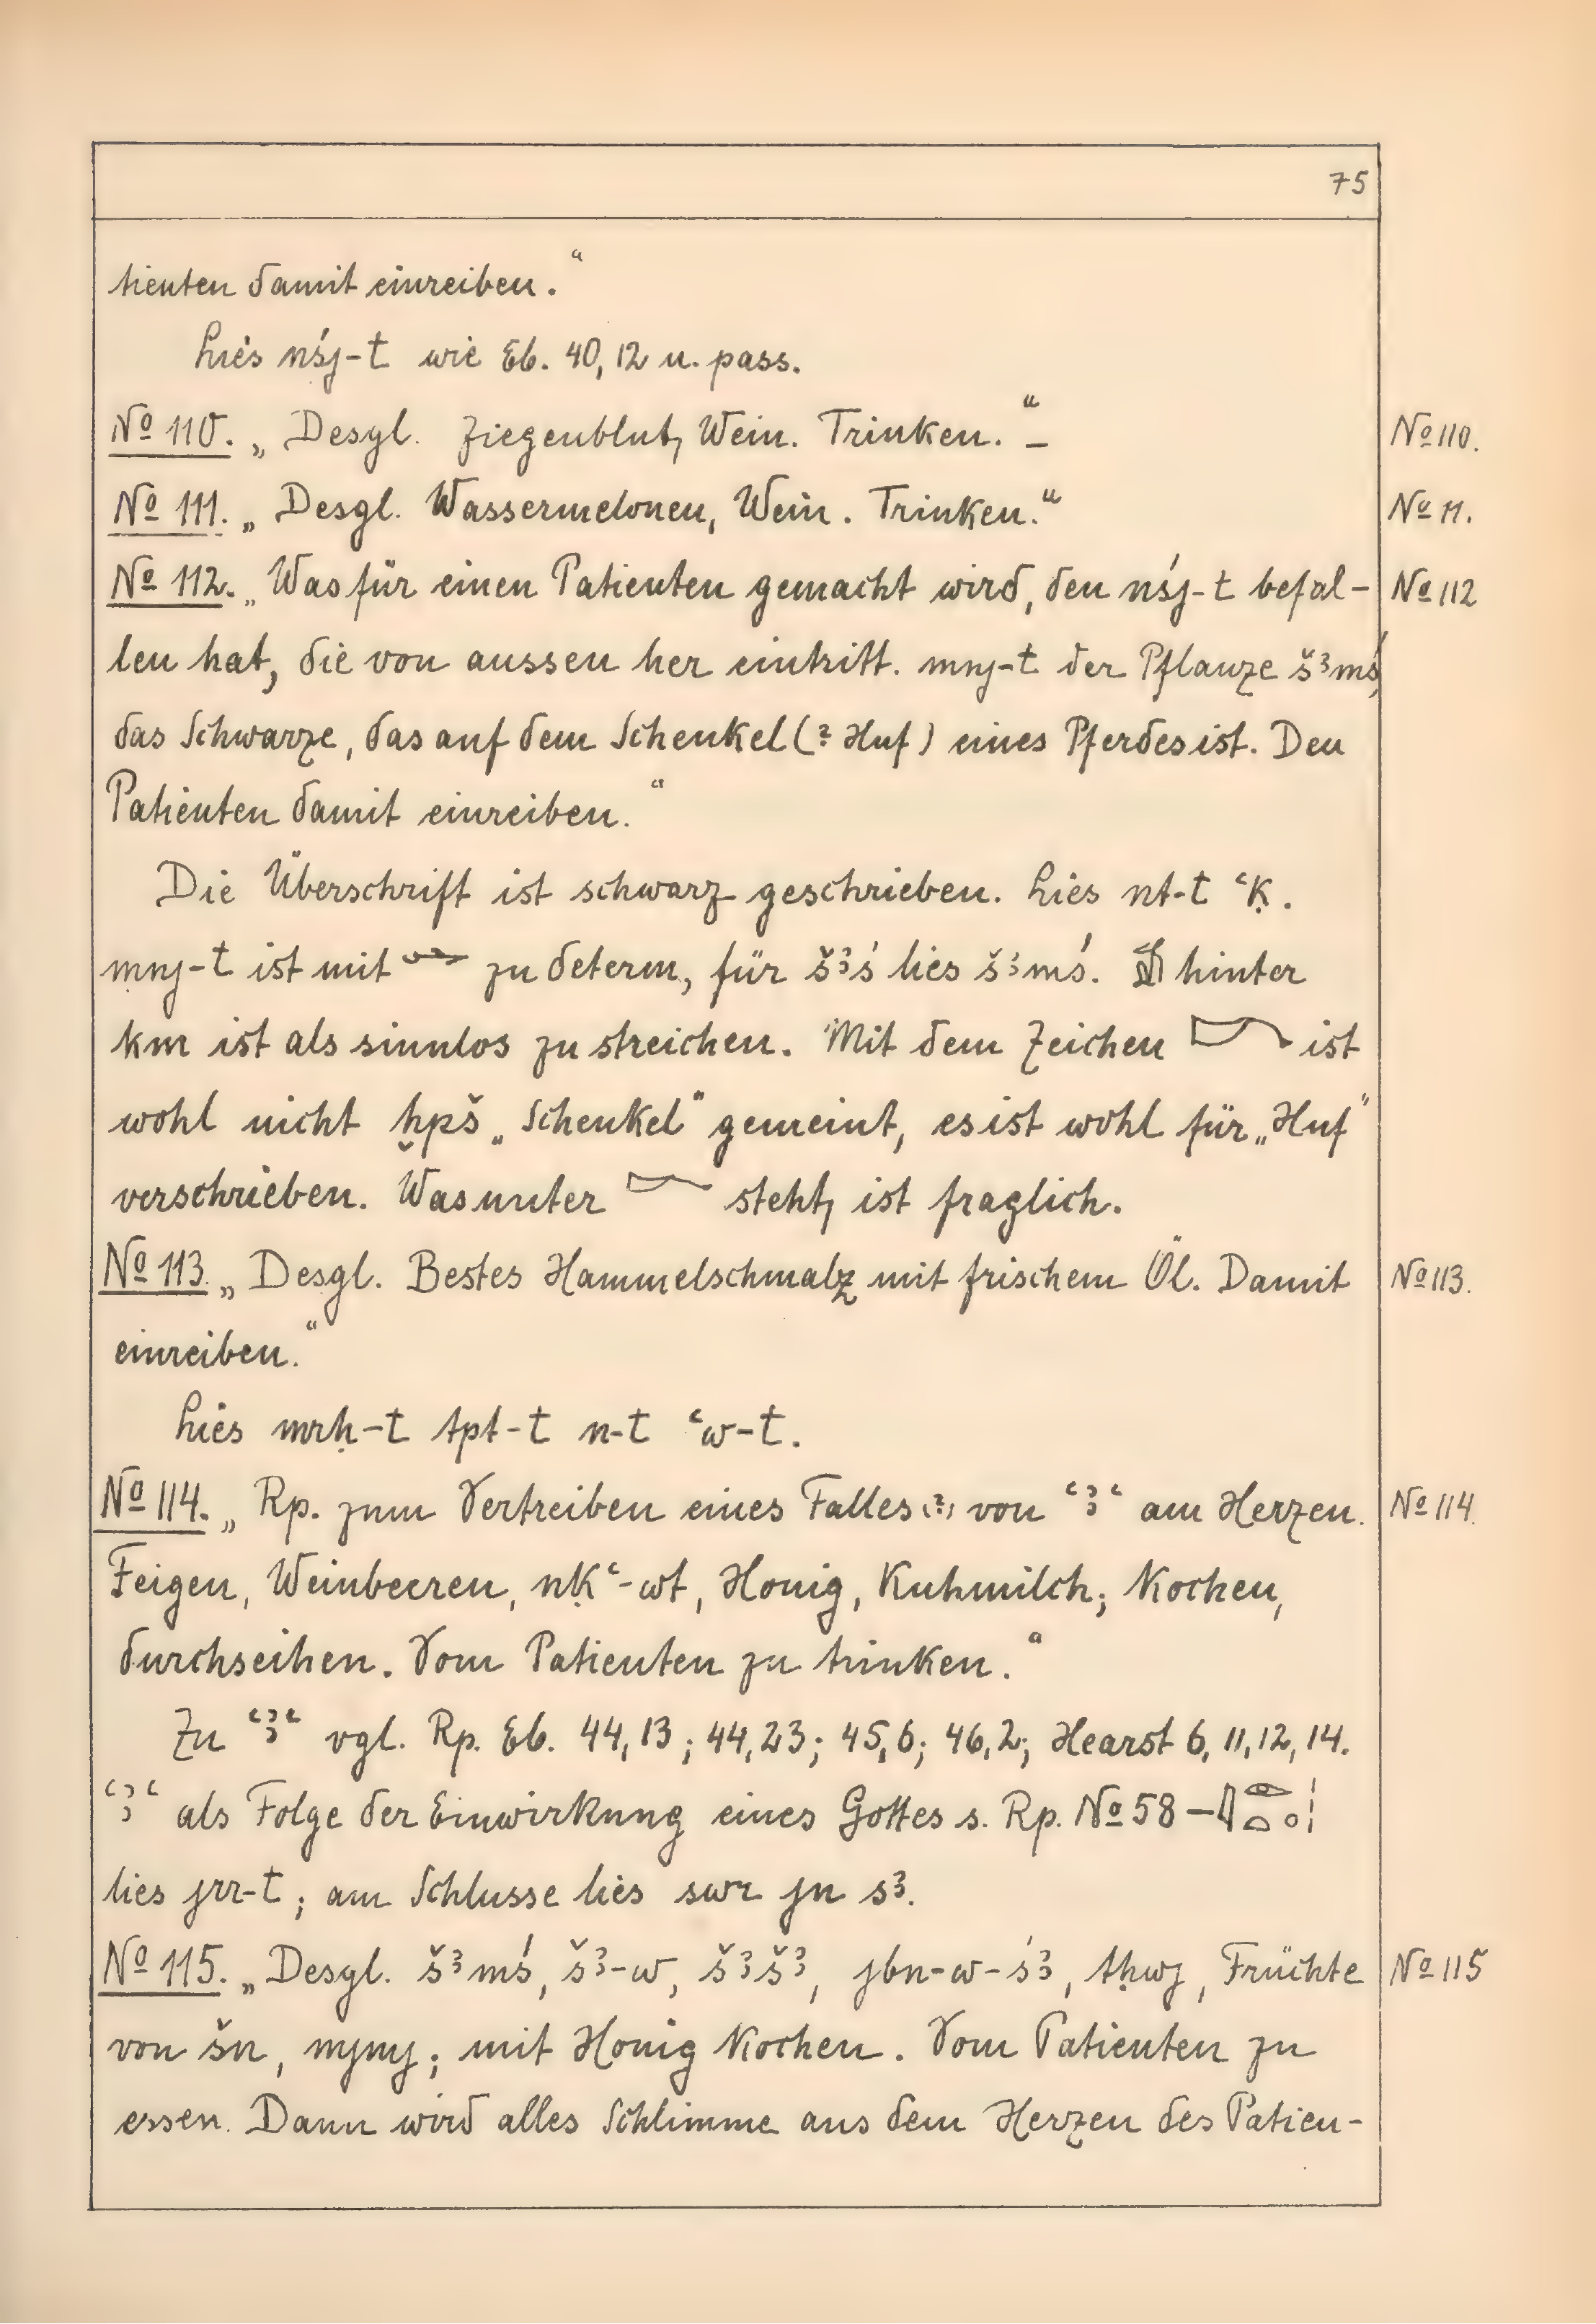 75
tienten damit einreiben.“
Lies nśj-t wie Eb. 40,12 u. pass.
No 110. „Desgl. Ziegenblut, Wein. Trinken.“ –
No 110.
No 111. „Desgl. Wassermelonen, Wein. Trinken.“
No 11.
No 112. „Was für einen Patienten gemacht wird, den nśj-t befal-
No 112
len hat, die von aussen her eintritt. mnj-t der Pflanze šꜣmś,
das Schwarze, das auf dem Schenkel (? Huf) eines Pferdes ist. Den
Patienten damit einreiben.“
Die Überschrift ist schwarz geschrieben. Lies nt-t ꜥḳ.
mnj-t ist mit zu determ., für šꜣś lies šꜣmś. hinter
km ist als sinnlos zu streichen. Mit dem Zeichen 𓄗 ist
wohl nicht ḫpš „Schenkel“ gemeint, es ist wohl für „Huf“
verschrieben. Was unter 𓄗 steht, ist fraglich.
No 113. „Desgl. Bestes Hammelschmalz mit frischem Öl. Damit
No 113.
einreiben.“
Lies mrḥ-t tpt-t n-t ꜥw-t.
No 114. „Rp. zum Vertreiben eines Falles (?) von ꜥꜣꜥ am Herzen.
No 114.
Feigen, Weinbeeren, nḳꜥ-wt, Honig, Kuhmilch; kochen,
durchseihen. Vom Patienten zu trinken.“
Zu ꜥꜣꜥ vgl. Rp. Eb. 44,13; 44,23; 45,6; 46,2; Hearst 6, 11, 12, 14.
ꜥꜣꜥ als Folge der Einwirkung eines Gottes s. Rp. No 58 –
lies jrr-t; am Schlusse lies swr jn sꜣ.
No 115. „Desgl. šꜣmś, šꜣ-w, šꜣšꜣ, jbn-w-śꜣ, tḥwj, Früchte
No 115
von šn, mjmj; mit Honig kochen. Vom Patienten zu
essen. Dann wird alles Schlimme aus dem Herzen des Patien-